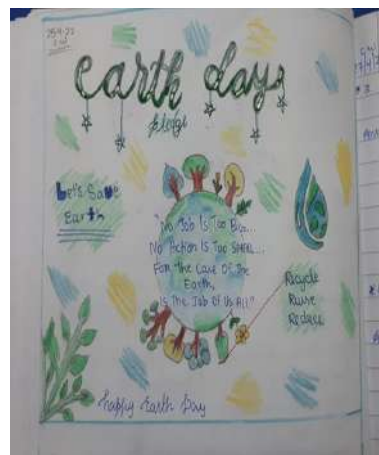 earth day
pledge
Let's Save
Earth
"No Job Is Too Big...
No Action Is Too Small...
For the Care Of The
Earth,
is The Job Of Us All"
Recycle
Reuse
Reduce
Happy Earth Day